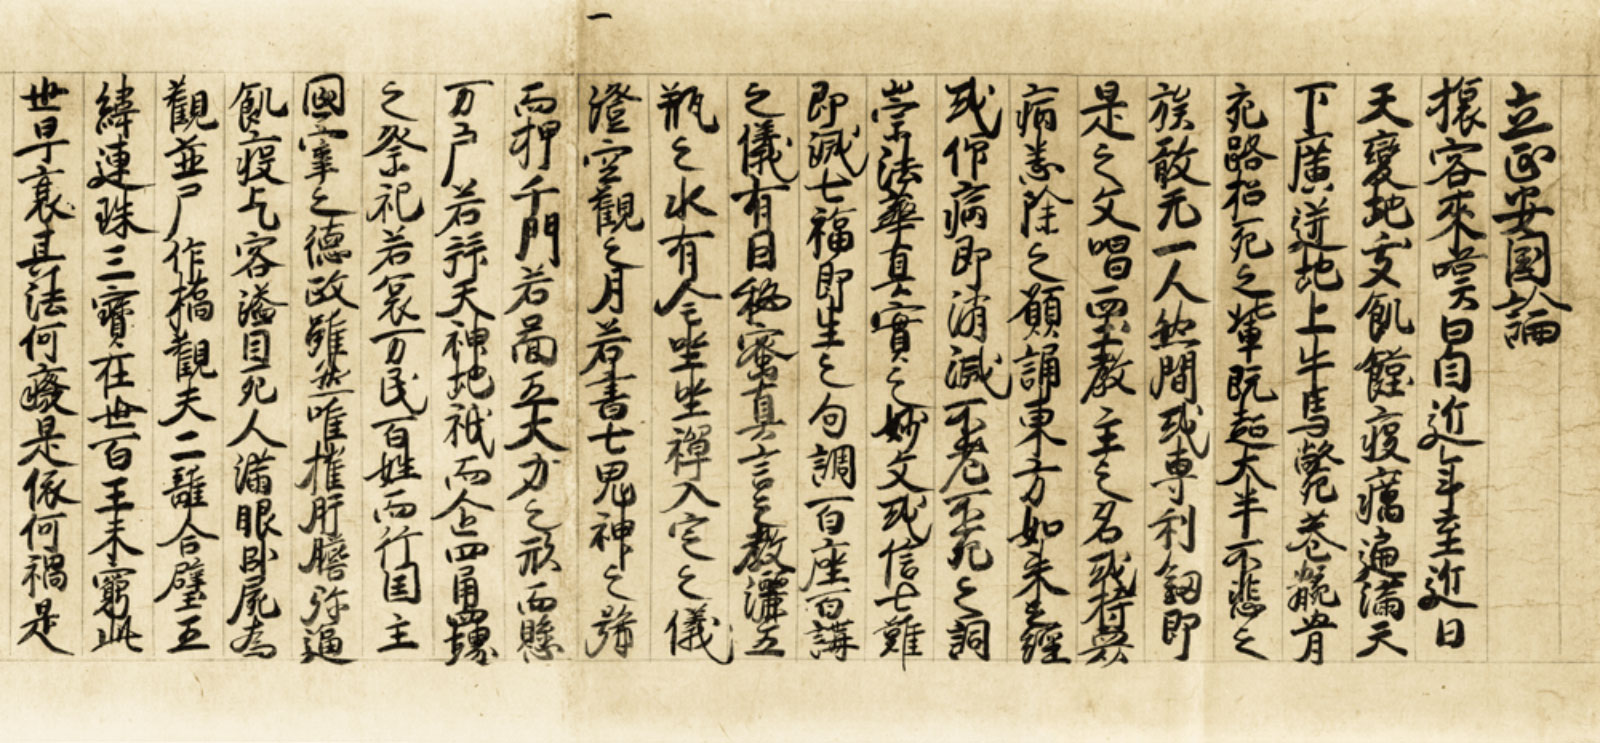 一
立正安国論
旅客來嘆曰自近年至近日
天變地夭飢饉疫癘遍滿天
下廣迸地上牛馬斃巷骸骨
充路招死之輩既超大半不悲之
族敢无一人然間或専利劔即
是之文唱西土教主之名或持衆
病悉除之願誦東方如来之經
或仰病即消滅不老不死之詞
崇法華真實之妙文或信七難
即滅七福即生之句調百座百講
之儀有因秘蜜真言之教灑五
瓶之水有全坐坐禪入定之儀
澄空觀之月若書七鬼神之號
而押千門若啚五大力之形而懸
万戸若拝天神地祇而企四角四堺
之祭祀若哀万民百姓而行国主
國宰之德政雖然唯摧肝膽弥逼
飢疫乞客溢目死人滿眼臥屍為
觀並尸作橋觀夫二離合璧五
緯連珠三寶在世百王未窮此
世早衰其法何廢是依何禍是